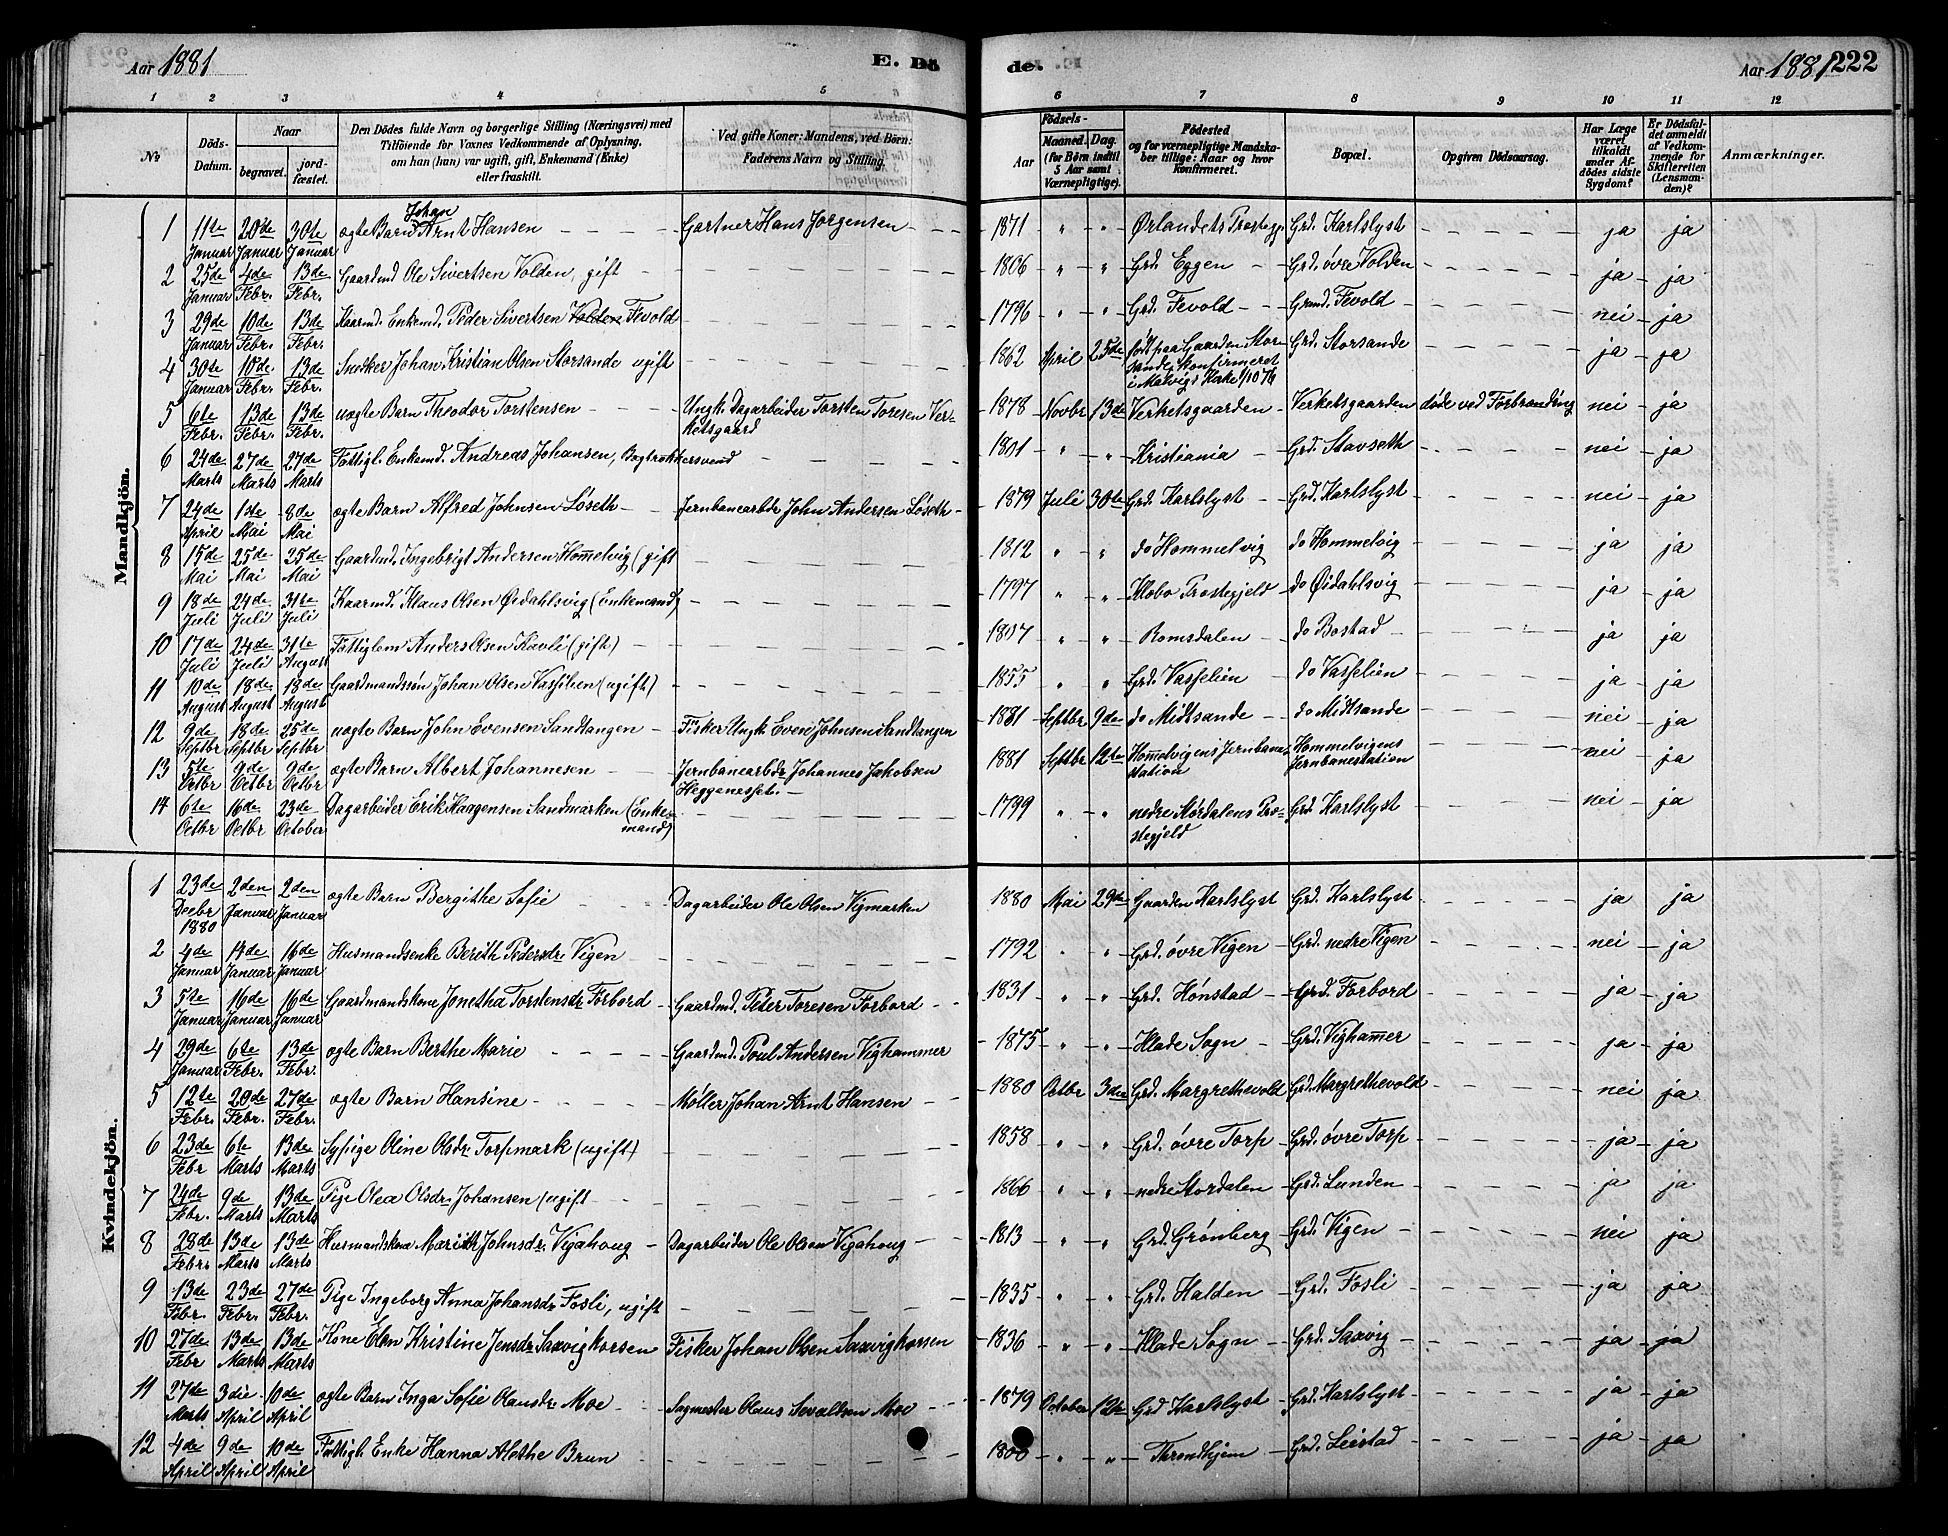 Aar 1881
E. Dö
de.
Aar 1881
222
1 2 3 4 5 6 7 8 9 10 11 12
No
Döds-Datum.
Naar
begravet.
jordfæstet.
Den Dödes fulde Navn og borgerlige Stilling (Næringsvei) med Tilföiende for Voxnes Vedkommende af Oplysning, om han (hun) var ugift, gift, Enkemand (Enke) eller fraskilt.
Ved gifte Koner: Mandens, ved Börn: Faderens Navn og Stilling.
Födsels-
Aar
Maaned. Dag.
(for Börn indtil 5 Aar samt Værnepligtige).
Födested og for værnepligtige Mandskaber tillige: Naar og hvor konfirmeret.
Bopæl.
Opgiven Dödsaarsag.
Har Læge været tilkaldt under Afdödes sidste Sygdom?
Er Dödsfaldet anmeldt af Vedkommende for Skifteretten (Lensmanden)?
Anmærkninger.
Mandkjön.
1 11te Januar 20de Januar 30te Januar ægte Barn Johan Arnt Hansen Gartner Hans Jørgensen 1871 " " Ørlandets Prestegj. Grd. Karlslyst ja ja
2 25de Januar 4de Febr. 13de Febr. Gaardmd Ole Sivertsen Volden, gift 1806 " " Grd. Eggen Grd. övre Volden ja ja
3 29de Januar 10de Febr. 13de Febr. Kaarmd. Enkemd. Peder Sivertsen Volden Fevold 1796 " " Grd. Fevold Grd. Fevold nei ja
4 30te Januar 10de Febr. 13de Febr. Snedker Johan Kristian Olsen Storsande ugift 1862 April 25de født paa Gaarden Storsande, konfirmeret i Malvigs Kirke 1/10 76 Grd. Storsande ja ja
5 6te Febr. 13de Febr. 13de Febr. uægte Barn Theodor Torstensen Ungk. Dagarbeider Torsten Toresen Verketsgaard 1878 Novbr 13de Verketsgaarden Verketsgaarden døde ved Forbrænding nei ja
6 24de Marts 27de Marts 27de Marts Fattigl. Enkemd. Andreas Johansen, Bogtrykkersvend 1801 " " Kristiania Grd. Stavseth nei ja
7 24de April 1ste Mai 8de Mai ægte Barn Alfred Johnsen Løseth Jernbanearbdr John Andersen Løseth 1879 Juli 30te Grd. Karlslyst Grd. Karlslyst nei ja
8 15de Mai 25de Mai 25de Mai Gaardmd. Ingebrigt Andersen Hommelvig (gift 1812 " " do Hommelvig do Hommelvig ja ja
9 18de Juli 24de Juli 31te Juli Kaarmd. Klaus Olsen Øidahlsvig (Enkemand) 1797 " " Klæbo Prestegjeld do Øidahlsvig ja ja
10 17de Juli 24de Juli 31te August Fattiglem Anders Olsen Kavli (gift) 1807 " " Romsdalen do Bostad ja ja
11 10de August 18de August 18de August Gaardmandssøn Johan Olsen Vasselien (ugift) 1855 " " Grd. Vasselien do Vasselien ja ja
12 9de Septbr 18de Septbr 25de Septbr uægte Barn John Evensen Sandtangen Fisker Ungk. Even Johnsen Sandtangen 1881 Septbr 9de do Midtsande do Midtsande nei ja
13 5te Octbr 9de Octbr 9de Octbr ægte Barn Albert Johannesen Jernbanearbdr Johannes Jakobsen Heggenesset. 1881 Septbr 12te Hommelvigens Jernbanestation Hommelvigens Jernbanestation nei ja
14 6te Octbr 16de Octbr 23de October Dagarbeider Erik Haagensen Sandmarken (Enkemand) 1799 " " nedre Størdalens Prestegjeld Grd Karlslyst nei ja
Kvindekjön.
1 23de Decbr 1880 2den Januar 2den Januar ægte Barn Bergithe Sofie Dagarbeider Ole Olsen Vigmarken 1880 Mai 29de Gaarden Karlslyst Grd. Karlslyst ja ja
2 4de Januar 14de Januar 16de Januar Husmandsenke Berith Pedersdr. Vigen 1792 " " Grd. övre Vigen Grd. nedre Vigen nei ja
3 5te Januar 16de Januar 16de Januar Gaardmandskone Jonetha Torstensdr Forbord Gaardmd. Peter Toresen Forbord 1831 " " Grd. Hønstad Grd. Forbord ja ja
4 29de Januar 6te Febr. 13de Febr. ægte Barn Berthe Marie Gaardmd. Poul Andersen Vighammer 1875 " " Hlade Sogn Grd. Vighammer ja ja
5 12te Febr. 20de Febr. 27de Febr. ægte Barn Hansine Møller Johan Arnt Hansen 1880 Octbr 3die Grd. Margrethevold Grd. Margrethevold nei ja
6 23de Febr 6te Marts 13de Marts Sypige Oline Olsdr. Torpmark (ugift) 1858 " " Grd. övre Torp Grd. övre Torp ja ja
7 24de Febr. 9de Marts 13de Marts Pige Olea Olsdr. Johansen (ugift 1866 " " nedre Størdalen Grd. Lunden ja ja
8 28de Febr. 13de Marts 13de Marts Husmandskone Marith Johnsdr. Vigahoug Dagarbeider Ole Olsen Vigahoug 1813 " " Grd. Grønberg Grd. Vigen nei ja
9 13de Febr. 23de Febr. 27de Febr. Pige Ingeborg Anna Johansdr Fosli, ugift 1835 " " Grd. Halden Grd. Fosli ja ja
10 27de Febr 13de Marts 13de Marts Kone Elen Kristine Jensdr Saxvigkorsen Fisker Johan Olsen Saxvigkorsen 1836 " " Hlade Sogn Grd. Saxvig ja ja
11 27de Marts 3die April 10de April ægte Barn Inga Sofie Olausdr. Moe Sagmester Olaus Sevaldsen Moe 1879 October 12te Grd Karlslyst Grd. Karlslyst ja ja
12 4de April 9de April 10de April Fattigl. Enke Hanna Alethe Brun 1800 " " Throndhjem Grd. Leistad ja ja